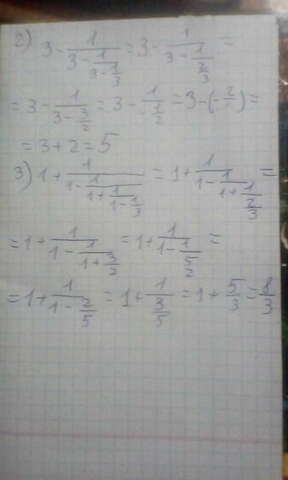 2) 3 - 1/(3 - 1/(3 - 1/3)) = 3 - 1/(3 - 1/(2/3)) =
= 3 - 1/(3 - 3/2) = 3 - 1/(-1/2) = 3 - (-2/1) =
= 3 + 2 = 5
3) 1 + 1/(1 - 1/(1 + 1/(1 - 1/3))) = 1 + 1/(1 - 1/(1 + 1/(2/3))) =
= 1 + 1/(1 - 1/(1 + 3/2)) = 1 + 1/(1 - 1/(5/2)) =
= 1 + 1/(1 - 2/5) = 1 + 1/(3/5) = 1 + 5/3 = 8/3